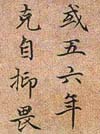 或五六年
克自抑畏